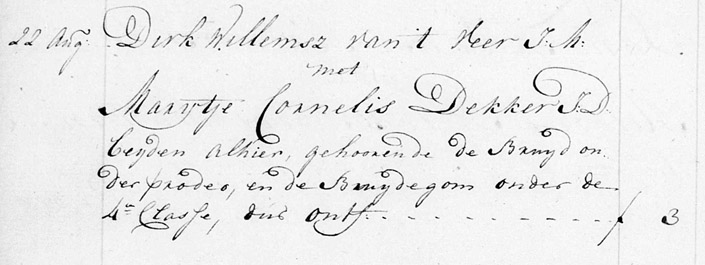 22 Aug: Dirk Willemsz van't Veer J:M:
met
Marytje Cornelis Dekker J:D:
beyden alhier, gehoorende de Bruyd on
der prodeo, en de Bruydegom onder de
4e Classe, dus ontf. - - - - - - - - - - f 3